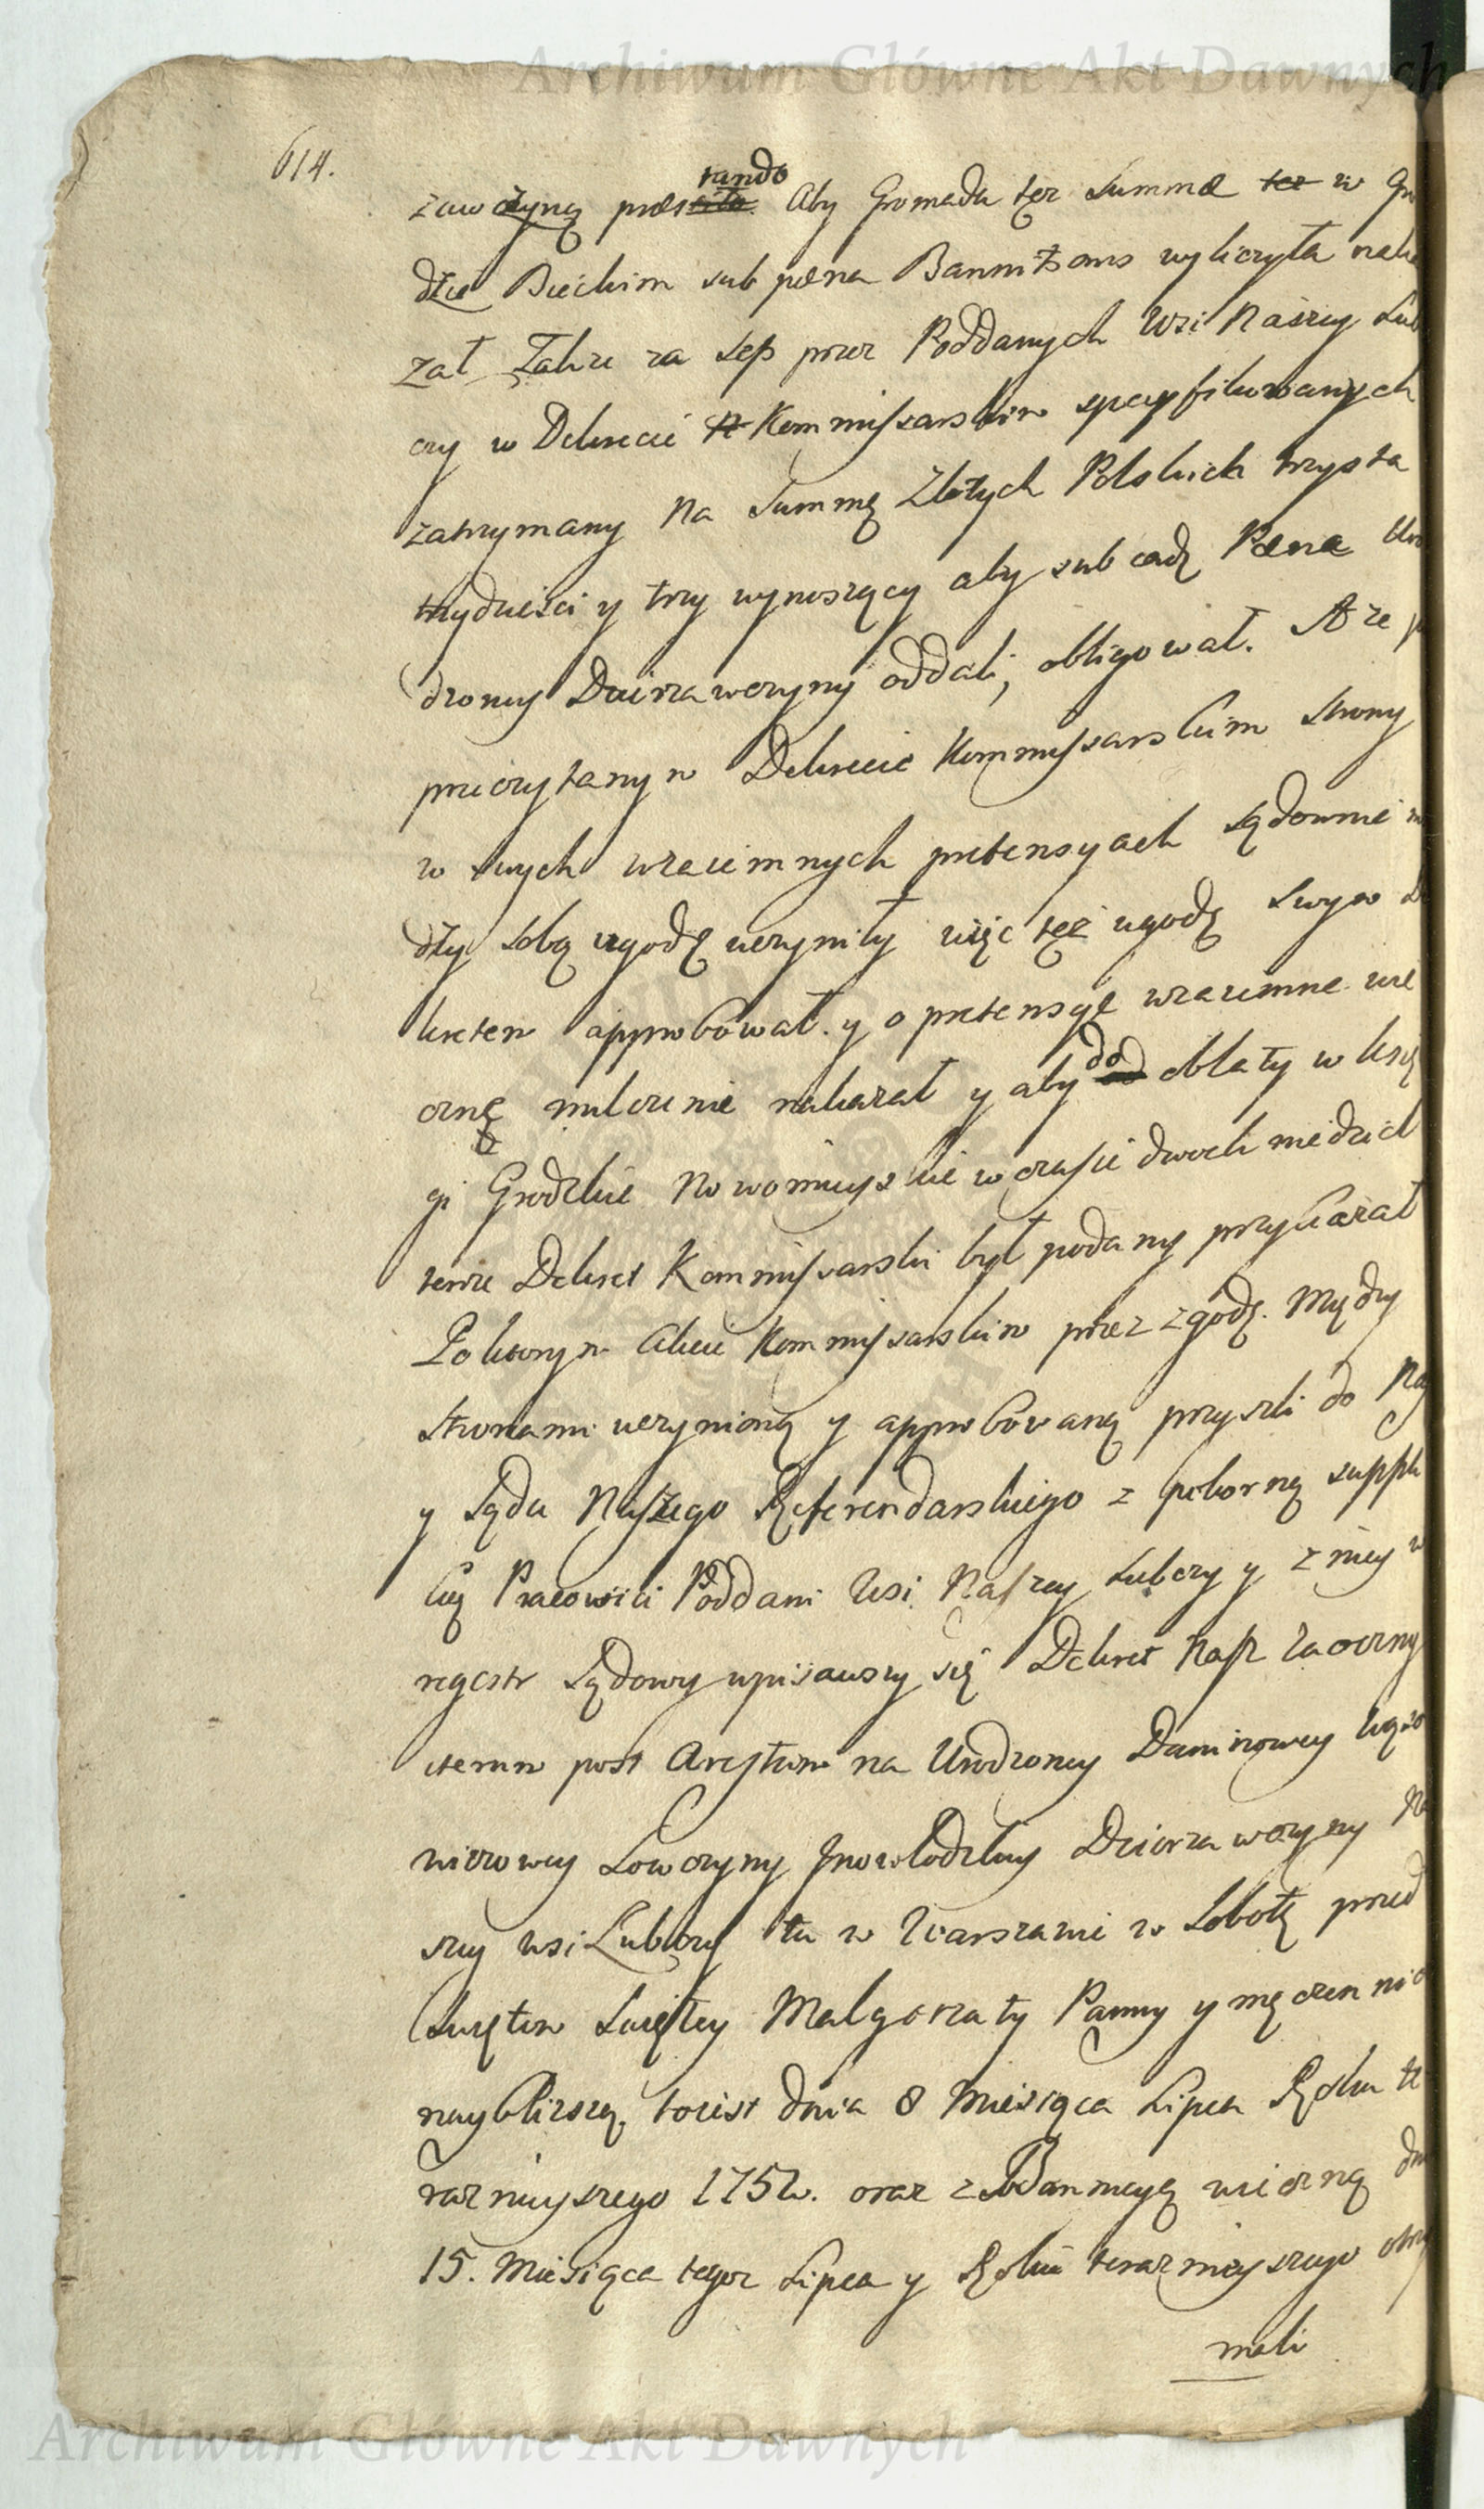 Archiwum Główne Akt Dawnych
614.
rando
zawczynę præstito. Aby Gromada tęz Summę tez w Gro
dzie Bieckim sub pœna Bannitionis wyliczyła naka
zał. Takze za Sep przez Poddanych Wsi Naszey Lub
czy w Dekrecie N Kommissarskim specyfikowanych
zatrzymany na Summę Złotych Polskich trzysta
trzydzieści y trzy wynoszący aby sub eadę Pœna Uro
dzoney Dzierzawczyny oddali, obligował. A ze p
przeczytanym Dekrecie Kommissarskim Strony
w swych wzaiemnych pretensyach sądownie m
dzy sobą ugodę uczyniły więc tęz ugodę swym De
kretem approbował y o pretensye wzaiemne wie
do
czne milczenie nakazał y aby od oblaty w ksie
gi Grodzkie Nowomieyskie w czasie dwoch niedziel
tenze Dekret Kommissarski był podany przykazał
Po ktorym Akcie Kommissarskim przez zgodę Między
Stronami uczynioną y approbowaną przyszli do Na
y Sądu Naszego Referendarskiego z pokorną suppli
ką Pracowici Poddani Wsi Naszey Lubczy y z niey w
regestr Sądowy wpisawszy się Dekret Nasz Zaoczny
item post Arestum na Urodzoney Daninowey
nierowey Łowczyny Inowłodzkiey Dzierzawczyny Na
szey wsi Lubczy tu w Warszawie w Sobotę przed
Swiętem Swiętey Małgorzaty Panny y męczennic
naybliszszą, to iest dnia 8 Miesiąca Lipca Roku te
raznieyszego 1752. oraz z Bannicyą wieczną dn
15. Miesiąca tegoz Lipca y Roku teraznieyszego otrzy
mali
Archiwum Główne Akt Dawnych